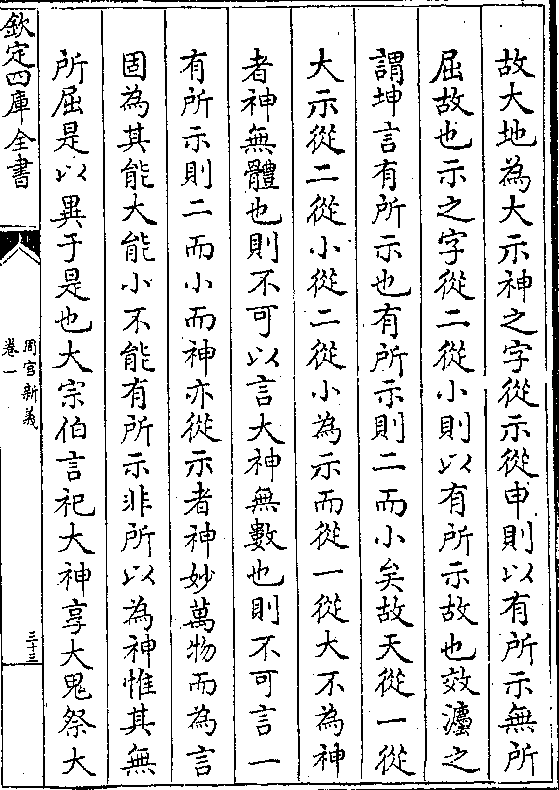 故大地為大示神之字從示從申則以有所示無所
屈故也示之字從二從小則以有所示故也效灋之
謂坤言有所示也有所示則二而小矣故天從一從
大示從二從小從二從小為示而從一從大不為神
者神無體也則不可以言大神無數也則不可言一
有所示則二而小而神亦從示者神妙萬物而為言
固為其能大能小不能有所示非所以為神惟其無
所屈是以異于是也大宗伯言祀大神享大鬼祭大
欽定四庫全書
周官新義
卷一
三十三